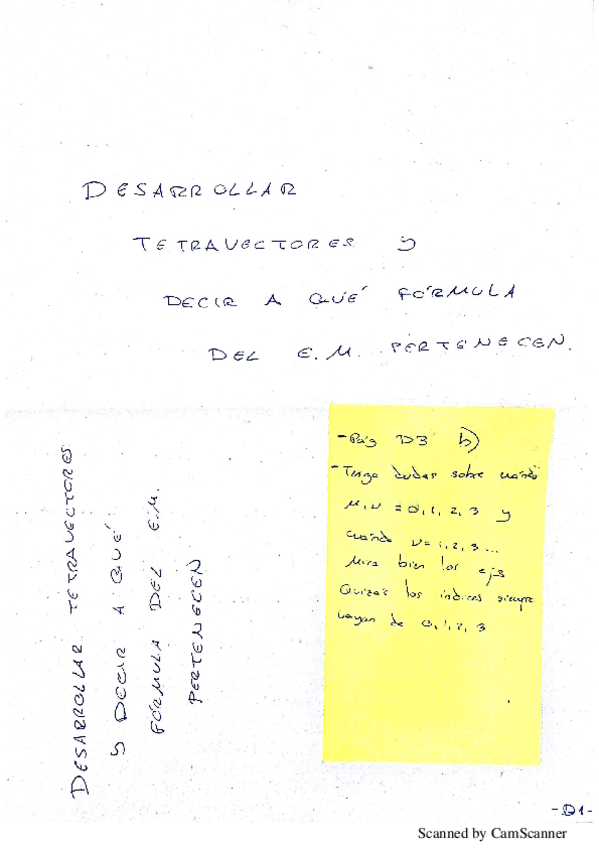 DESARROLLAR
TETRAVECTORES y
DECIR A QUÉ FÓRMULA
DEL E.M. PERTENECEN.
DESARROLLAR TETRAVECTORES
y DECIR A QUÉ
FÓRMULA DEL E.M.
PERTENECEN
- Pág D3 b)
- Tengo dudas sobre cuándo
μ, ν = 0, 1, 2, 3 y
cuándo ν = 1, 2, 3 ...
Mira bien los ejs
Quizás los índices siempre
vayan de 0, 1, 2, 3
- D1 -
Scanned by CamScanner